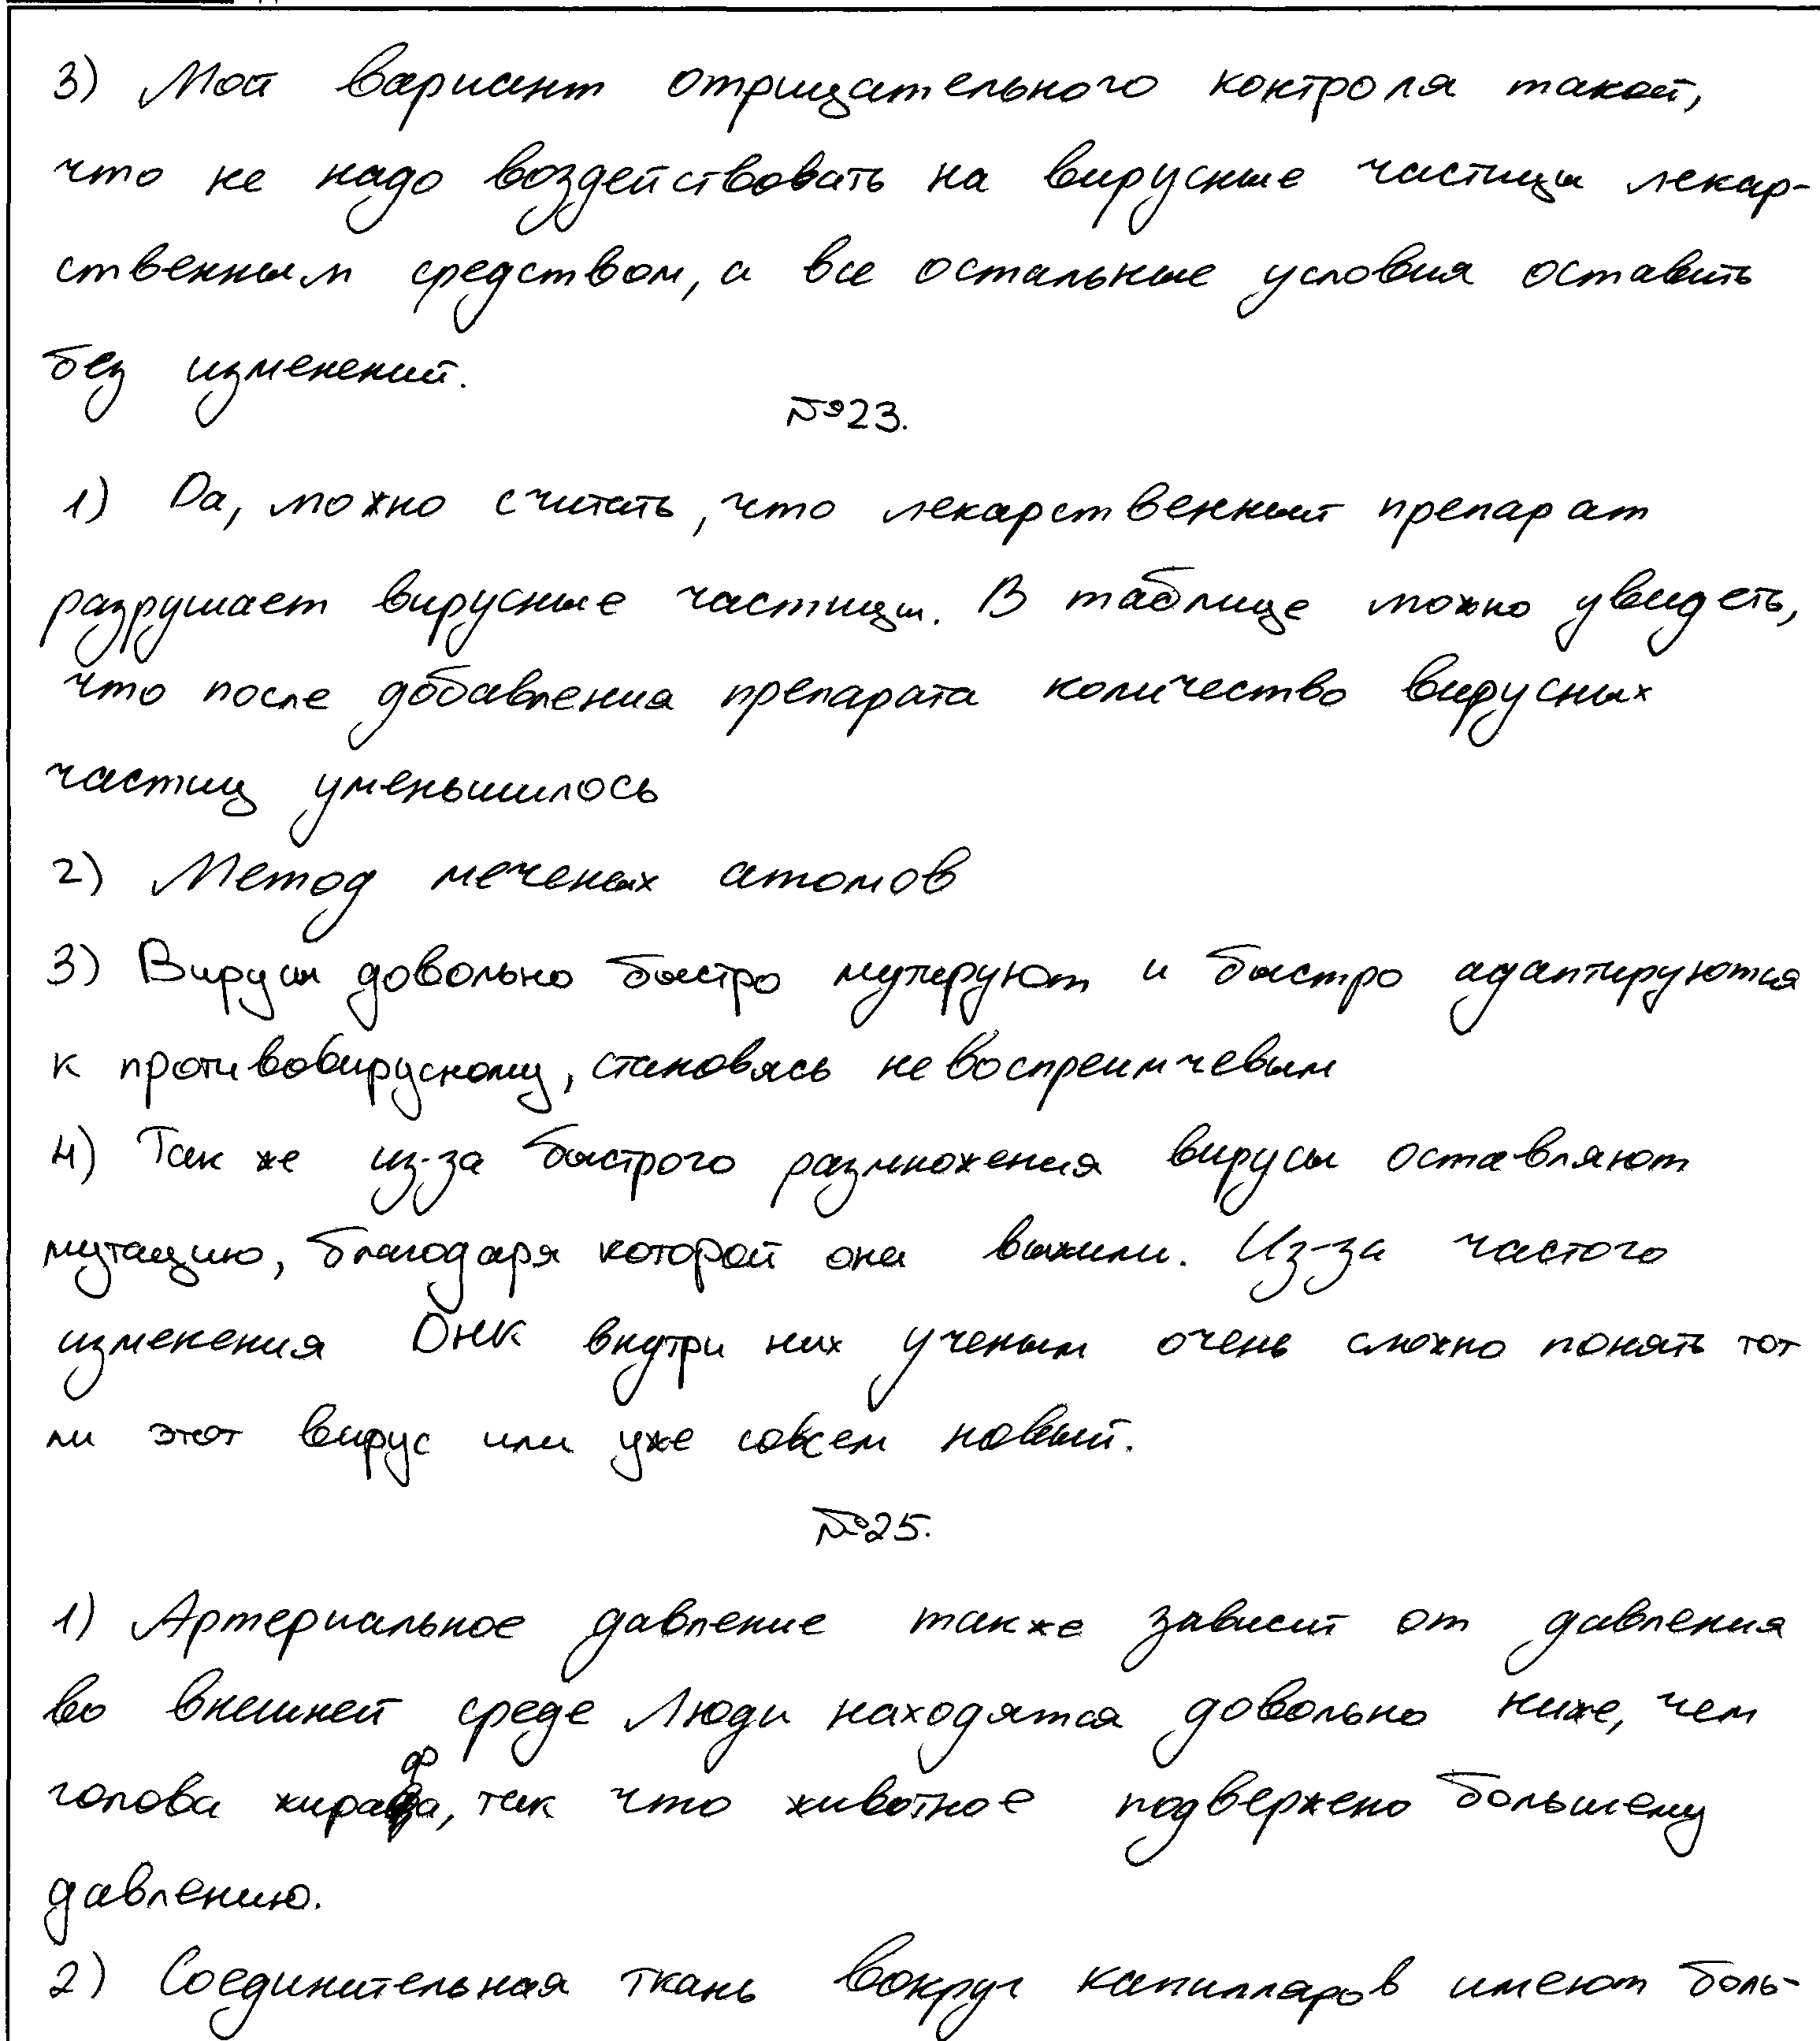 3) Мой вариант отрицательного контроля такой,
что не надо воздействовать на вирусные частицы лекар-
ственным средством, а все остальные условия оставить
без изменений.
№23.
1) Да, можно считать, что лекарственный препарат
разрушает вирусные частицы. В таблице можно увидеть,
что после добавления препарата количество вирусных
частиц уменьшилось
2) Метод меченых атомов
3) Вирусы довольно быстро мутируют и быстро адаптируются
к противовирусному, становясь невоспреимчевым
4) Так же из-за быстрого размножения вирусы оставляют
мутацию, благодаря которой они выжили. Из-за частого
изменения ДНК внутри них ученым очень сложно понять тот
ли этот вирус или уже совсем новый.
№25.
1) Артериальное давление также зависит от давления
во внешней среде Люди находятся довольно ниже, чем
голова жирафа, так что животное подвержено большему
давлению.
2) Соединительная ткань вокруг капилляров имеют боль-